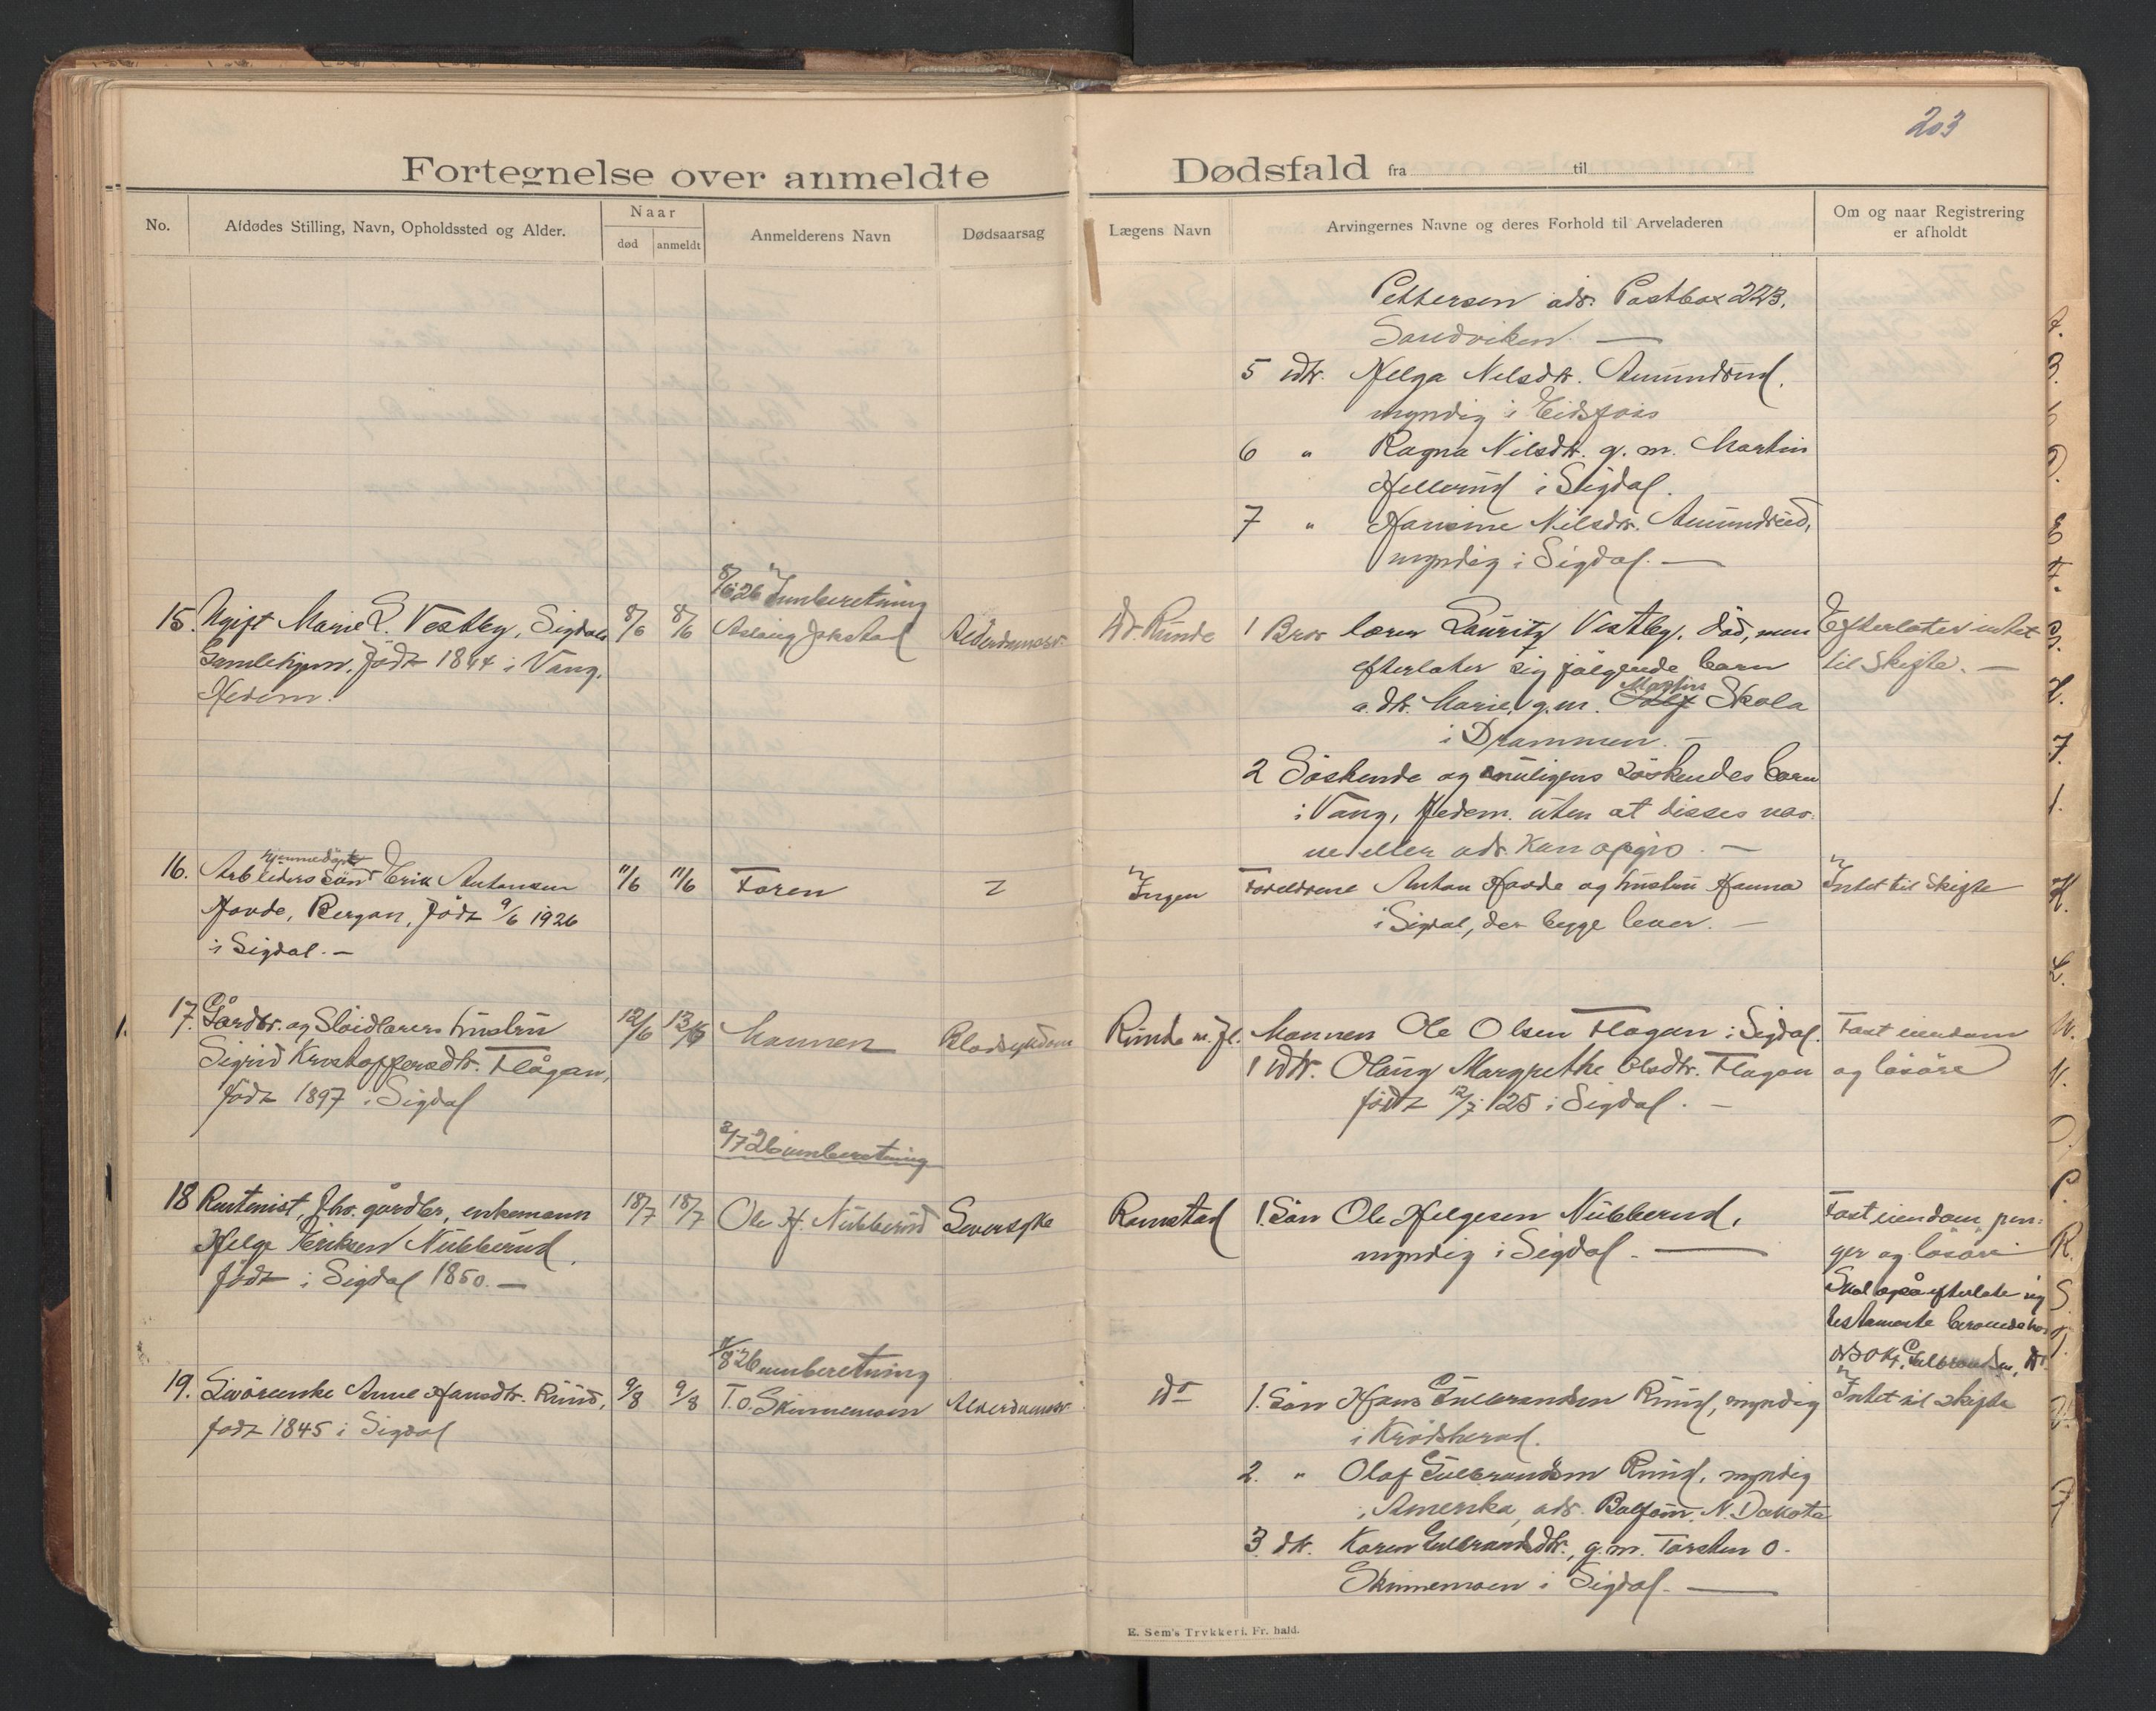 203
Fortegnelse over anmeldte Dødsfald fra til
No.
Afdødes Stilling, Navn, Opholdssted og Alder.
Naar
død
anmeldt
Anmelderens Navn
Dødsaarsag
Lægens Navn
Arvingernes Navne og deres Forhold til Arveladeren
Om og naar Registrering
er afholdt
Pettersen adr. Postbox 223.
Sandviken. —
5 dtr. Helga Nilsdtr. Amundrud,
myndig i Eidsfoss
6 " Ragna Nilsdtr. g. m. Martin
Hellerud i Sigdal.
7 " Hansine Nilsdtr. Amundrud,
myndig i Sigdal. —
8/6 26 Innberetning
15. Ugift Marie L. Vestby, Sigdals
Gamlehjem, født 1844 i Vang.
Hedem.
8/6
8/6
Aslaug Jokstad
Alderdomssv.
Dr. Runde
1 Bror lærer Lauritz Vestby, død, men
efterlater sig følgende barn
a. dtr. Marie, g.m. Martin Skola
i Drammen. —
2 Søskende og muligens søskendes barn
i Vang, Hedem. uten at disses nav-
ne eller adr. kan opgis. —
Efterlater intet
til skifte. —
16. Arbeiders sønn Erik Antonsen
Hovde, Bergan, født 9/6 1926
i Sigdal. —
11/6
11/6
Faren
Ingen
Foreldrene Anton Hovde og hustru Hanna
i Sigdal, der begge lever. —
Intet til skifte
17. Gårdbr. og Sløidlærers hustru
Sigrid Kristoffersdtr. Flågan,
født 1897 i Sigdal
12/6
13/6
Mannen
Blodsykdom
Runde m. fl.
Mannen Ole Olsen Flagan i Sigdal.
1 dtr. Olaug Margrethe Olsdtr. Flagan
født 12/7 125 i Sigdal. —
Fast eiendom
og løsøre
2/7 26 innberetning
18 Rentenist, fhv. gårdbr., enkemann
Helge Eriksen Nubberud,
født i Sigdal 1850. —
18/7
18/7
Ole H. Nubberud
Leversyke
Ramstad
1. Søn Ole Helgesen Nubberud,
myndig i Sigdal. —
Fast eiendom, pen-
ger og løsøre
Skal også efterlate sig
testamente beroende hos
19. Livøreenke Anne Hansdtr. Ruud,
født 1845 i Sigdal
9/8
9/8
8 26 innberetning
T. O. Skinnemoen
Alderdomssv.
do
1. Søn Hans Gulbrandsen Ruud, myndig
i Krødsherad.
2. " Olaf Gulbrandsen Ruud, myndig
i Amerika, adr. Balfour, N. Dakota
3. dtr. Karen Gulbrandsdtr., g.m. Torsten O.
Skinnemoen i Sigdal. —
Intet til skifte
E. Sem's Trykkeri, Fr. hald.